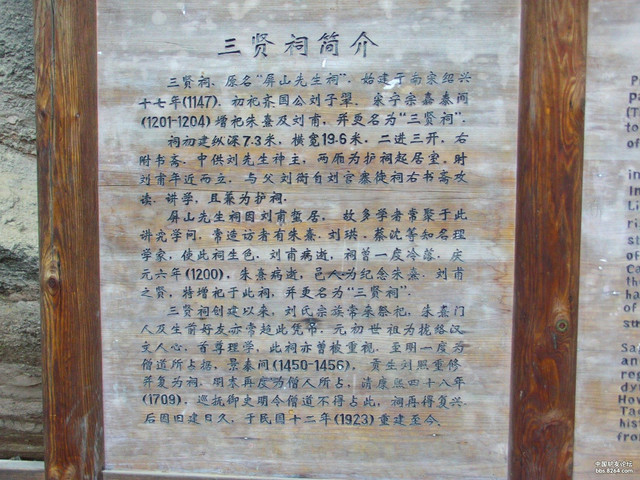 三贤祠简介
三贤祠，原名“屏山先生祠”。始建于南宋绍兴
十七年(1147)，初祀齐国公刘子翚，宋宁宗嘉泰间
(1201-1204)增祀朱熹及刘甫，并更名为“三贤祠”。
祠初建纵深7.3米，横宽19.6米，二进三开，右
附书斋。中供刘先生神主，两厢为护祠起居室，时
刘甫年近而立，与父刘衙自刘官寨徙祠右书斋攻
读、讲学，且兼为护祠。
屏山先生祠因刘甫蛰居，故多学者常聚于此
讲究学问，常造访者有朱熹、刘珙、蔡沈等知名理
学家，使此祠生色。刘甫病逝，祠曾一度冷落。庆
元六年(1200)，朱熹病逝，邑人为纪念朱熹、刘甫
之贤，特增祀于此祠，并更名为“三贤祠”。
三贤祠创建以来，刘氏宗族常来祭祀，朱熹门
人及生前好友亦常趋此凭吊。元初世祖为拢络汉
文人心，首尊理学，此祠亦曾被重视。至明一度为
僧道所占据，景泰间(1450-1456)，贡生刘熙重修
并复为祠。明末再度为僧人所占，清康熙四十八年
(1709)，巡抚御史明令僧道不得占此，祠再得复兴。
后因旧建日久，于民国十二年(1923)重建至今。
P
pa
(T
to
of
in
In
Li
ri
si
of
C
th
ha
of
su
Sa
an
reg
dy
How
Ta
hist
fro
中国蚁友论坛
bbs.8264.com